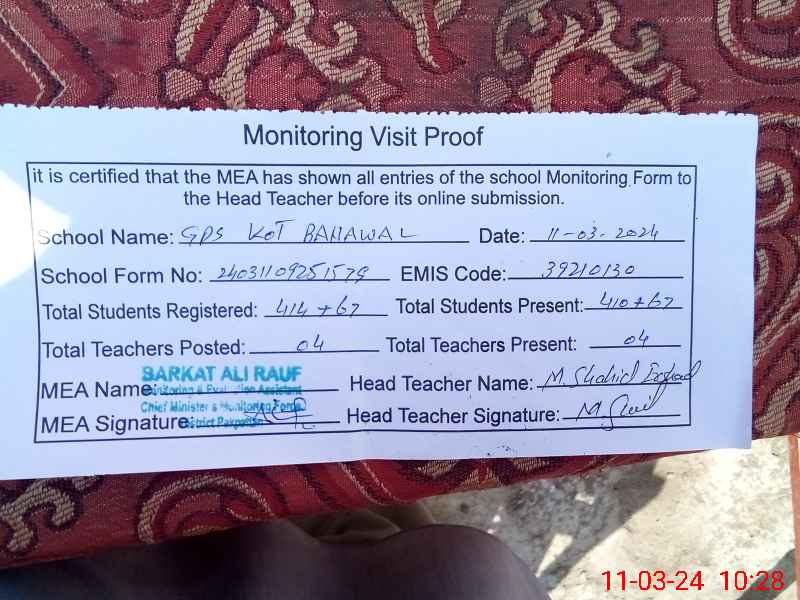 Monitoring Visit Proof
it is certified that the MEA has shown all entries of the school Monitoring Form to
the Head Teacher before its online submission.
School Name: GPS KOT BAHAWAL Date: 11-03-2024
School Form No: 24031109251579 EMIS Code: 39210130
Total Students Registered: 414+67 Total Students Present: 410+67
Total Teachers Posted: 04 Total Teachers Present: 04
BARKAT ALI RAUF
MEA Name: Monitoring & Evaluation Assistant Head Teacher Name: M. Shahid
Chief Minister's Monitoring Force
MEA Signature: District Pakpattan Head Teacher Signature:
11-03-24 10:28